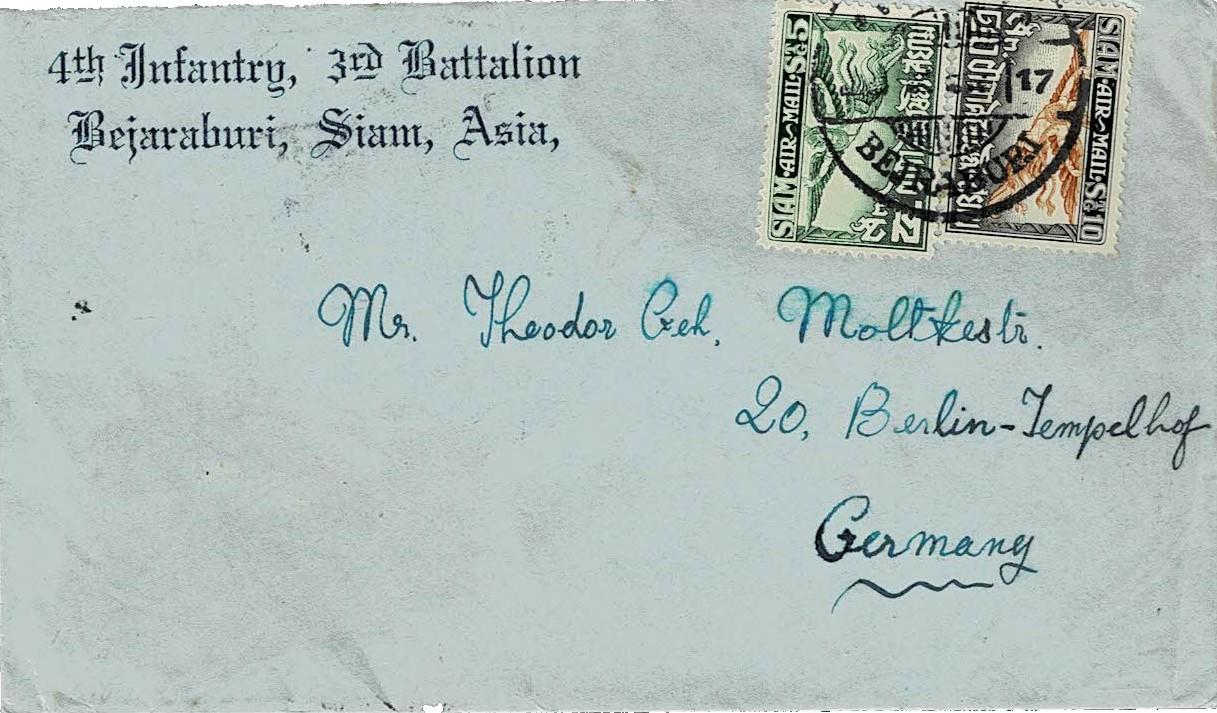 4th Infantry, 3rd Battalion
Bejaraburi, Siam, Asia,
SIAM·AIR~MAIL·Sa5
SIAM·AIR~MAIL·Sa10
17
BEJRABURI
Mr. Theodor Geh, Moltkestr.
20, Berlin-Tempelhof
Germany